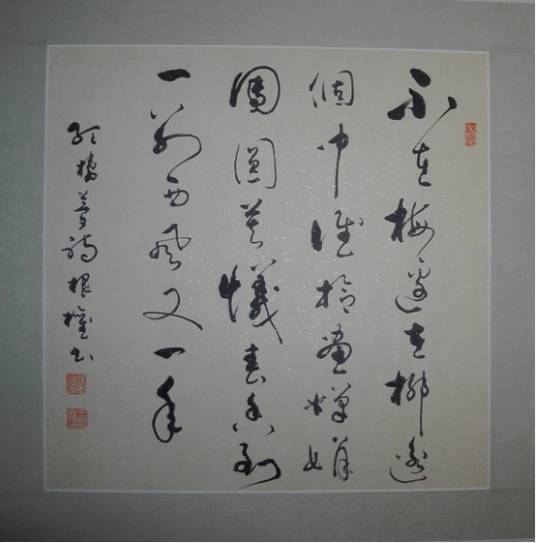 不在梅邊在柳邊
個中誰拾畫嬋娟
團圓莫憶春香到
一別西風又一年
紅樓夢詩根權書